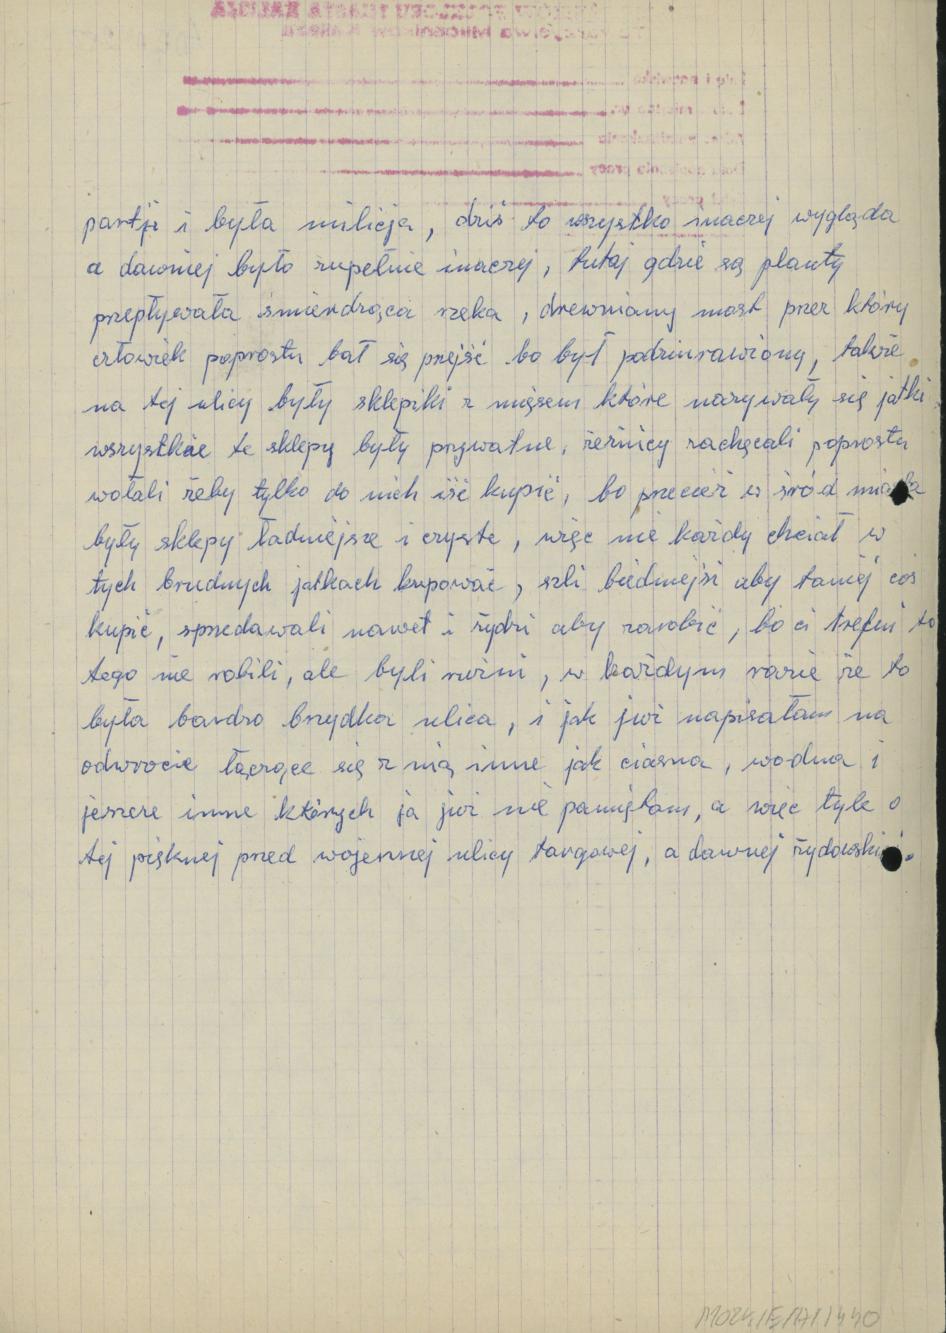 partji i była milicja, dziś to wszystko inaczej wygląda
a dawniej było zupełnie inaczej, tutaj gdzie są planty
przepływała śmierdząca rzeka, drewniany most przez który
człowiek poprostu bał się przejść bo był podziurawiony, także
na tej ulicy były sklepiki z mięsem które nazywały się jatki
wszystkie te sklepy były prywatne, rzeźnicy zachęcali poprostu
wołali żeby tylko do nich iść kupić, bo przecież w śród miasta
były sklepy ładniejsze i czyste, więc nie każdy chciał w
tych brudnych jatkach kupować, szli biedniejsi aby taniej coś
kupić, sprzedawali nawet i żydzi aby zarobić, bo ci trefni to
tego nie robili, ale byli różni, w każdym razie że to
była bardzo brzydka ulica, i jak już napisałam na
odwrocie łączące się z nią inne jak ciasna, wodna i
jeszcze inne których ja już nie pamiętam, a więc tyle o
tej pięknej przed wojennej ulicy targowej, a dawnej żydowskiej.